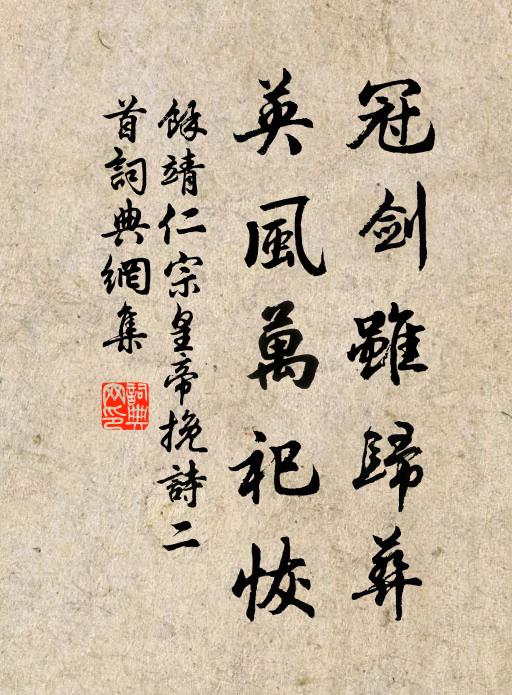 冠劍雖歸葬
英風萬祀恢
餘靖仁宗皇帝挽詩二
首詞典網集
詞典网印